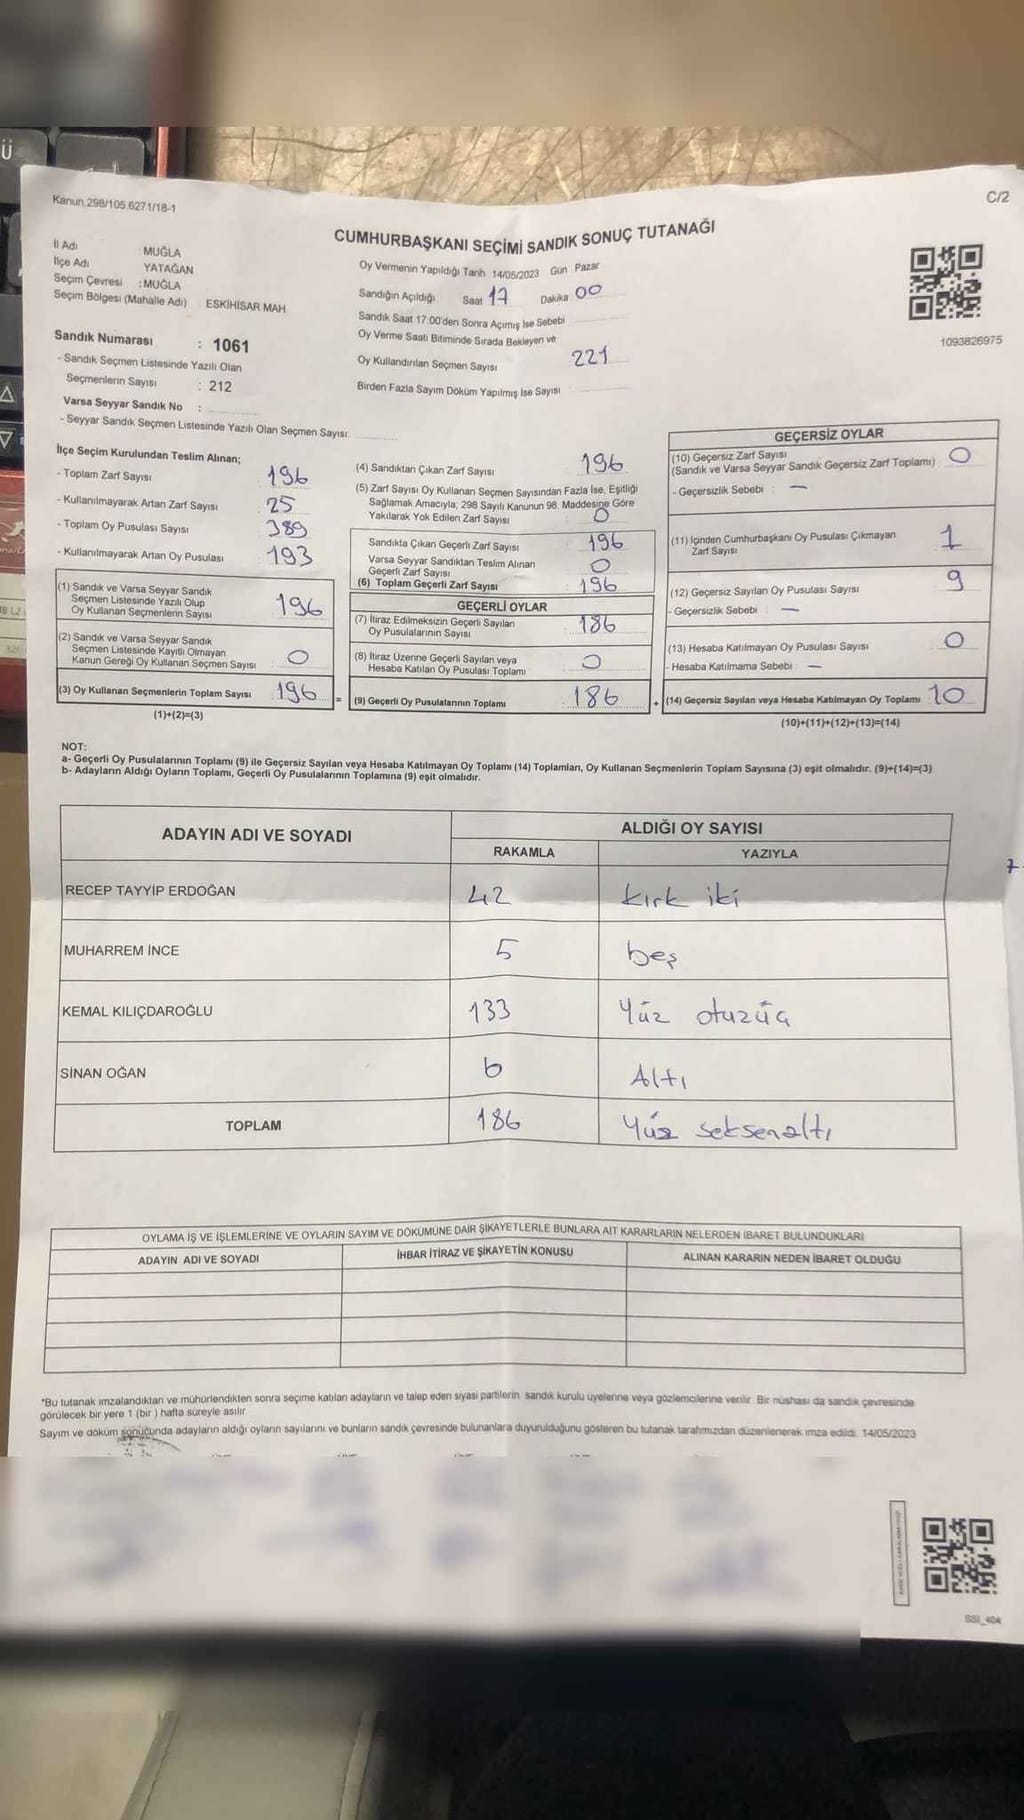 Ü
Kanun.298/105.6271/18-1
C/2
CUMHURBAŞKANI SEÇİMİ SANDIK SONUÇ TUTANAĞI
İl Adı MUĞLA
İlçe Adı YATAĞAN
Seçim Çevresi :MUĞLA
Seçim Bölgesi (Mahalle Adı) ESKİHİSAR MAH
Oy Vermenin Yapıldığı Tarih 14/05/2023 Gün Pazar
Sandığın Açıldığı Saat 17 Dakika 00
Sandık Saat 17:00'den Sonra Açımış İse Sebebi
Oy Verme Saati Bitiminde Sırada Bekleyen ve
Oy Kullandırılan Seçmen Sayısı 221
Birden Fazla Sayım Döküm Yapılmış İse Sayısı
1093826975
Sandık Numarası : 1061
- Sandık Seçmen Listesinde Yazılı Olan
Seçmenlerin Sayısı : 212
Varsa Seyyar Sandık No :
- Seyyar Sandık Seçmen Listesinde Yazılı Olan Seçmen Sayısı
İlçe Seçim Kurulundan Teslim Alınan;
- Toplam Zarf Sayısı 196
- Kullanılmayarak Artan Zarf Sayısı 25
- Toplam Oy Pusulası Sayısı 389
- Kullanılmayarak Artan Oy Pusulası 193
(1) Sandık ve Varsa Seyyar Sandık
Seçmen Listesinde Yazılı Olup
Oy Kullanan Seçmenlerin Sayısı 196
(2) Sandık ve Varsa Seyyar Sandık
Seçmen Listesinde Kayıtlı Olmayan
Kanun Gereği Oy Kullanan Seçmen Sayısı 0
(3) Oy Kullanan Seçmenlerin Toplam Sayısı 196 =
(1)+(2)=(3)
(4) Sandıktan Çıkan Zarf Sayısı 196
(5) Zarf Sayısı Oy Kullanan Seçmen Sayısından Fazla İse, Eşitliği
Sağlamak Amacıyla; 298 Sayılı Kanunun 98. Maddesine Göre
Yakılarak Yok Edilen Zarf Sayısı 0
Sandıkta Çıkan Geçerli Zarf Sayısı 196
Varsa Seyyar Sandıktan Teslim Alınan
Geçerli Zarf Sayısı 0
(6) Toplam Geçerli Zarf Sayısı 196
GEÇERLİ OYLAR
(7) İtiraz Edilmeksizin Geçerli Sayılan
Oy Pusulalarının Sayısı 186
(8) İtiraz Üzerine Geçerli Sayılan veya
Hesaba Katılan Oy Pusulası Toplamı 0
(9) Geçerli Oy Pusulalarının Toplamı 186 +
GEÇERSİZ OYLAR
(10) Geçersiz Zarf Sayısı 0
(Sandık ve Varsa Seyyar Sandık Geçersiz Zarf Toplamı)
- Geçersizlik Sebebi : —
(11) İçinden Cumhurbaşkanı Oy Pusulası Çıkmayan
Zarf Sayısı 1
(12) Geçersiz Sayılan Oy Pusulası Sayısı 9
- Geçersizlik Sebebi : —
(13) Hesaba Katılmayan Oy Pusulası Sayısı 0
- Hesaba Katılmama Sebebi : —
(14) Geçersiz Sayılan veya Hesaba Katılmayan Oy Toplamı 10
(10)+(11)+(12)+(13)=(14)
NOT:
a- Geçerli Oy Pusulalarının Toplamı (9) ile Geçersiz Sayılan veya Hesaba Katılmayan Oy Toplamı (14) Toplamları, Oy Kullanan Seçmenlerin Toplam Sayısına (3) eşit olmalıdır. (9)+(14)=(3)
b- Adayların Aldığı Oyların Toplamı, Geçerli Oy Pusulalarının Toplamına (9) eşit olmalıdır.
ADAYIN ADI VE SOYADI
ALDIĞI OY SAYISI
RAKAMLA YAZIYLA
RECEP TAYYİP ERDOĞAN 42 kırk iki
MUHARREM İNCE 5 beş
KEMAL KILIÇDAROĞLU 133 Yüz otuzüç
SİNAN OĞAN 6 Altı
TOPLAM 186 Yüz seksenaltı
OYLAMA İŞ VE İŞLEMLERİNE VE OYLARIN SAYIM VE DÖKÜMÜNE DAİR ŞİKAYETLERLE BUNLARA AİT KARARLARIN NELERDEN İBARET BULUNDUKLARI
ADAYIN ADI VE SOYADI İHBAR İTİRAZ VE ŞİKAYETİN KONUSU ALINAN KARARIN NEDEN İBARET OLDUĞU
*Bu tutanak imzalandıktan ve mühürlendikten sonra seçime katılan adayların ve talep eden siyasi partilerin sandık kurulu üyelerine veya gözlemcilerine verilir. Bir nüshası da sandık çevresinde
görülecek bir yere 1 (bir) hafta süreyle asılır.
Sayım ve döküm sonucunda adayların aldığı oyların sayılarını ve bunların sandık çevresinde bulunanlara duyurulduğunu gösteren bu tutanak tarafımızdan düzenlenerek imza edildi. 14/05/2023
SSI_404